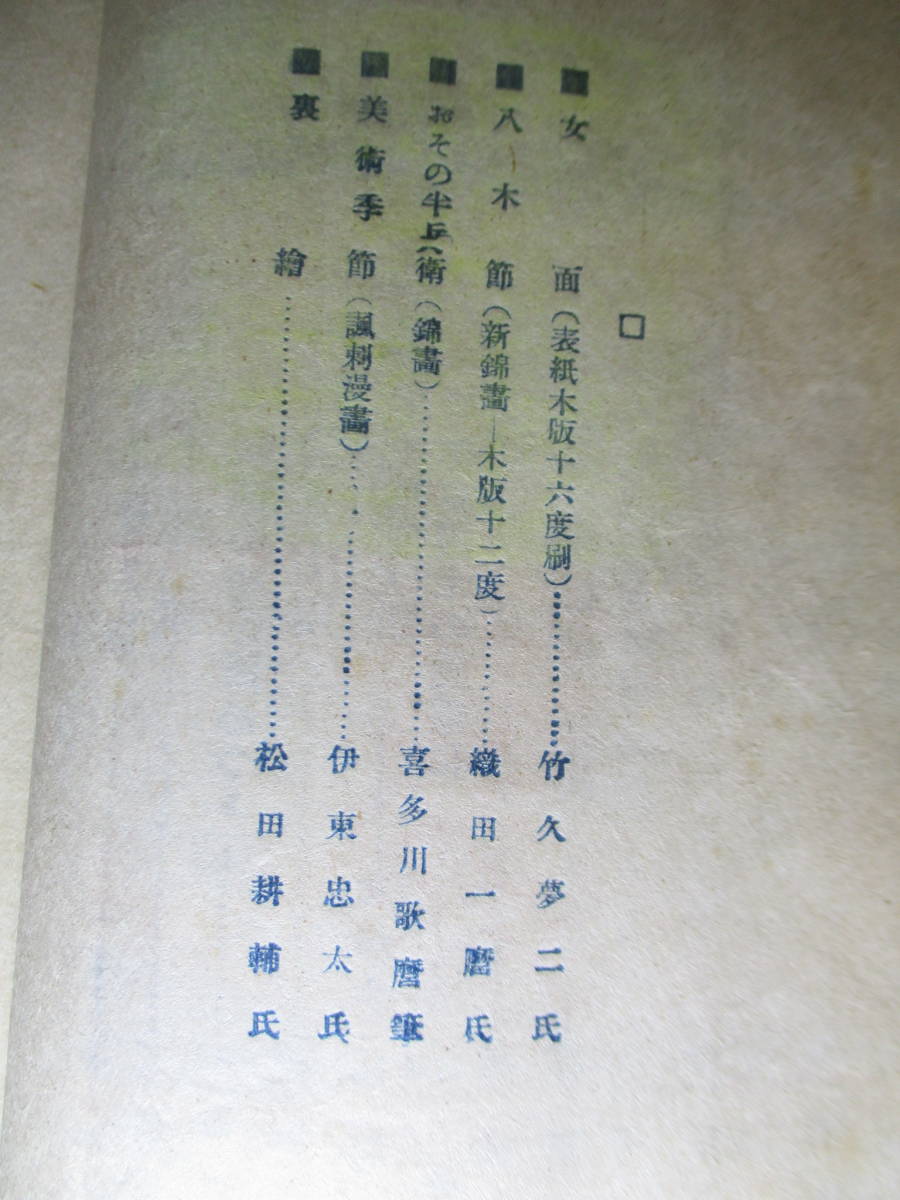 □
■女面(表紙木版十六度刷)…………竹久夢二氏
■八木節(新錦畵―木版十二度)…………織田一麿氏
■おその半兵衛(錦畵)…………喜多川歌麿筆
■美術季節(諷刺漫畵)…………伊東忠太氏
■裏繪…………松田耕輔氏